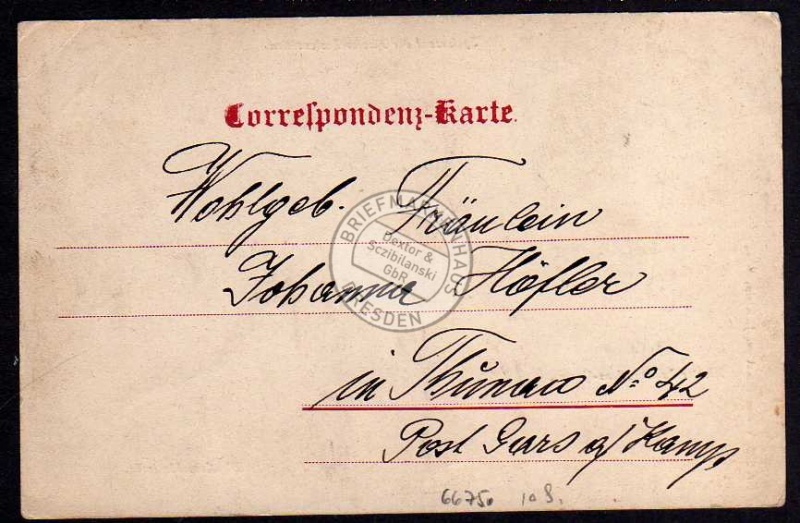 Correspondenz-Karte.
Wohlgeb. Fräulein
Johanna Höfler
in Thunau No 42
Post Gars a/Kamp
BRIEFMARKENHAUS
Rextor &
Sczibilanski
GbR
DRESDEN
6675